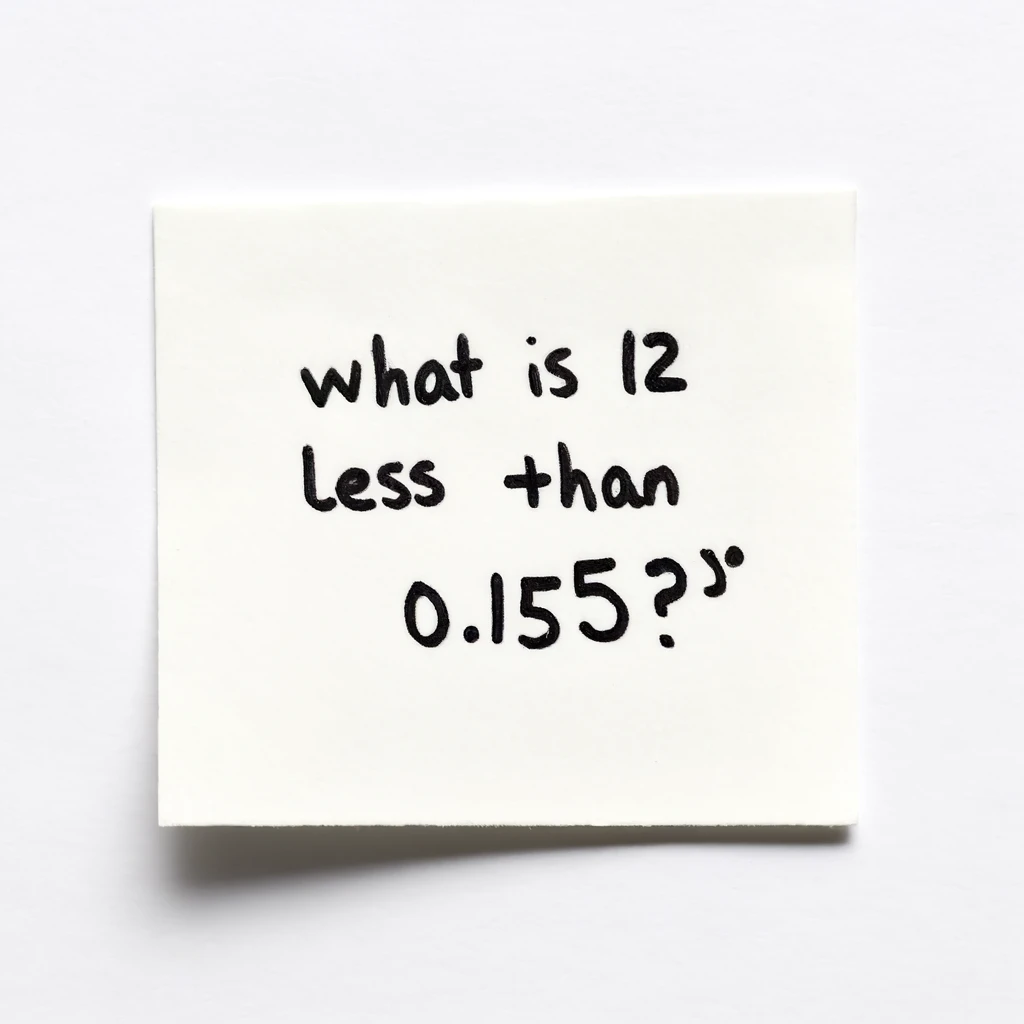 what is 12
less than
0.155?